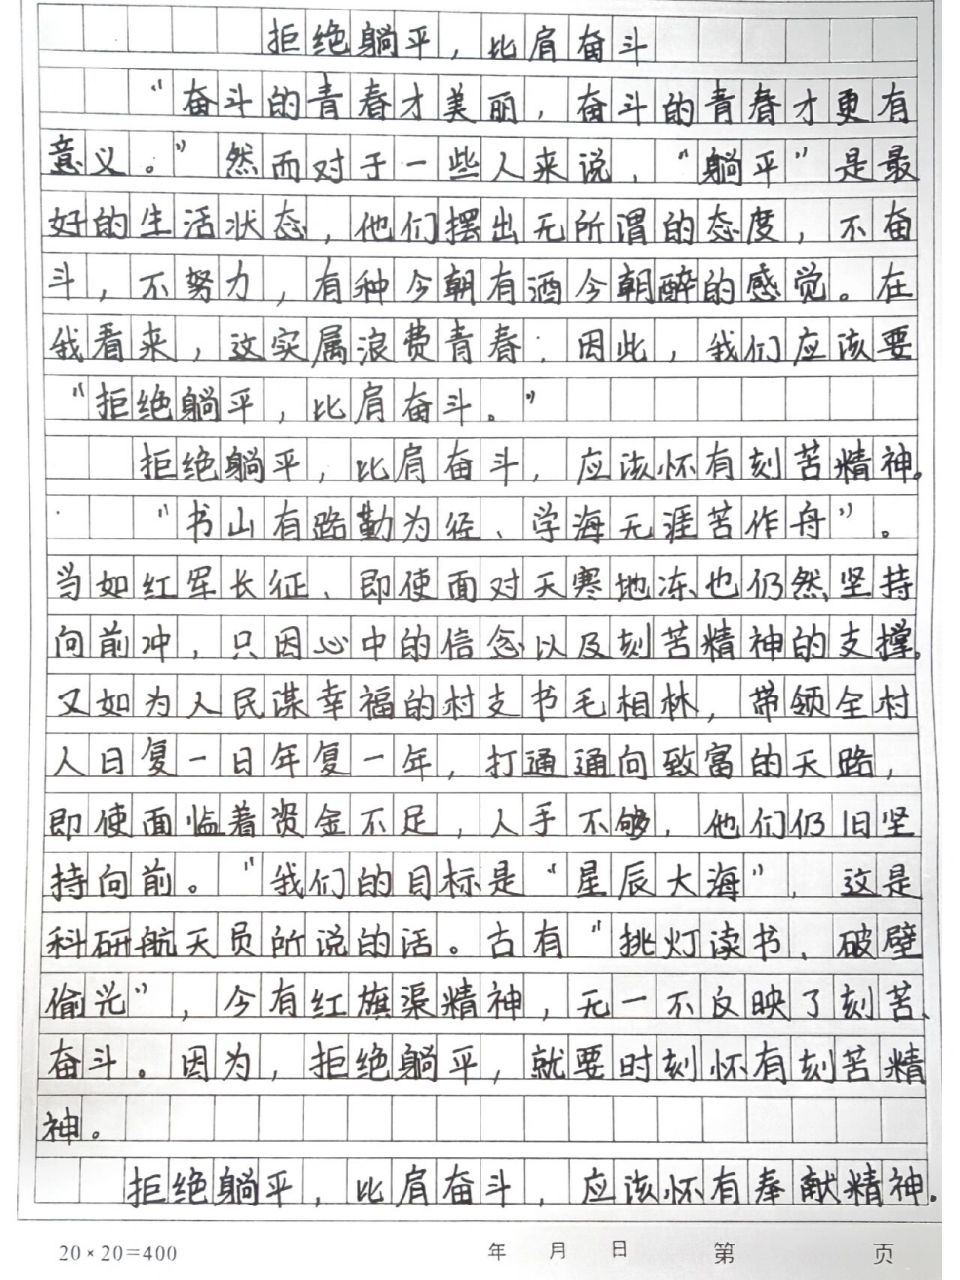 拒绝躺平，比肩奋斗
“奋斗的青春才美丽，奋斗的青春才更有
意义。”然而对于一些人来说，“躺平”是最
好的生活状态，他们摆出无所谓的态度，不奋
斗，不努力，有种今朝有酒今朝醉的感觉。在
我看来，这实属浪费青春；因此，我们应该要
“拒绝躺平，比肩奋斗。”
拒绝躺平，比肩奋斗，应该怀有刻苦精神。
“书山有路勤为径、学海无涯苦作舟”。
当如红军长征、即使面对天寒地冻也仍然坚持
向前冲，只因心中的信念以及刻苦精神的支撑。
又如为人民谋幸福的村支书毛相林，带领全村
人日复一日年复一年，打通通向致富的天路，
即使面临着资金不足，人手不够，他们仍旧坚
持向前。“我们的目标是“星辰大海”，这是
科研航天员所说的话。古有“挑灯读书、破壁
偷光”，今有红旗渠精神，无一不反映了刻苦、
奋斗。因为，拒绝躺平，就要时刻怀有刻苦精
神。
拒绝躺平，比肩奋斗，应该怀有奉献精神.
20×20=400 年 月 日 第 页